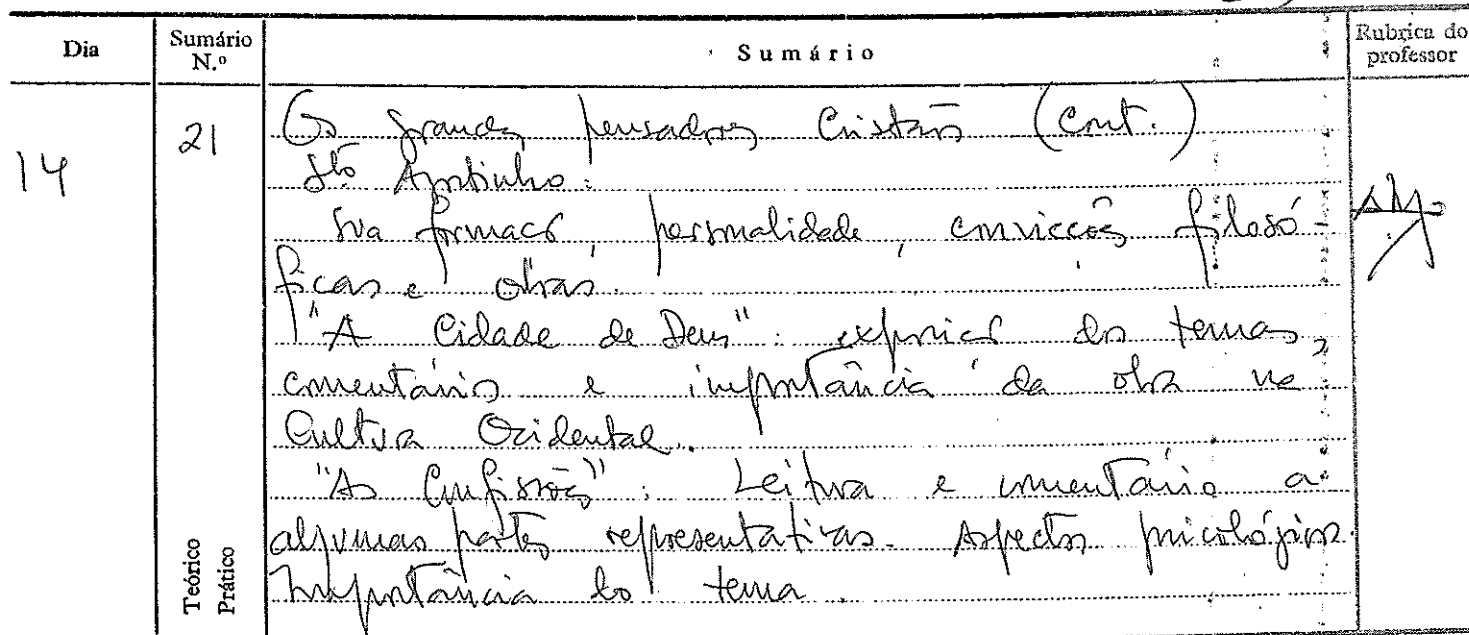 Dia
Sumário N.º
Sumário
Rubrica do professor
14
21
Os grandes pensadores Cristãos (Cont.)
Stº Agostinho:
Sua formação, personalidade, convicções filosó-
ficas e obras.
"A Cidade de Deus": exposição dos temas,
comentários e importância da obra na
Cultura Ocidental.
"As Confissões": Leitura e comentário a
algumas partes representativas. Aspectos psicológicos.
Importância do tema.
Teórico
Prático